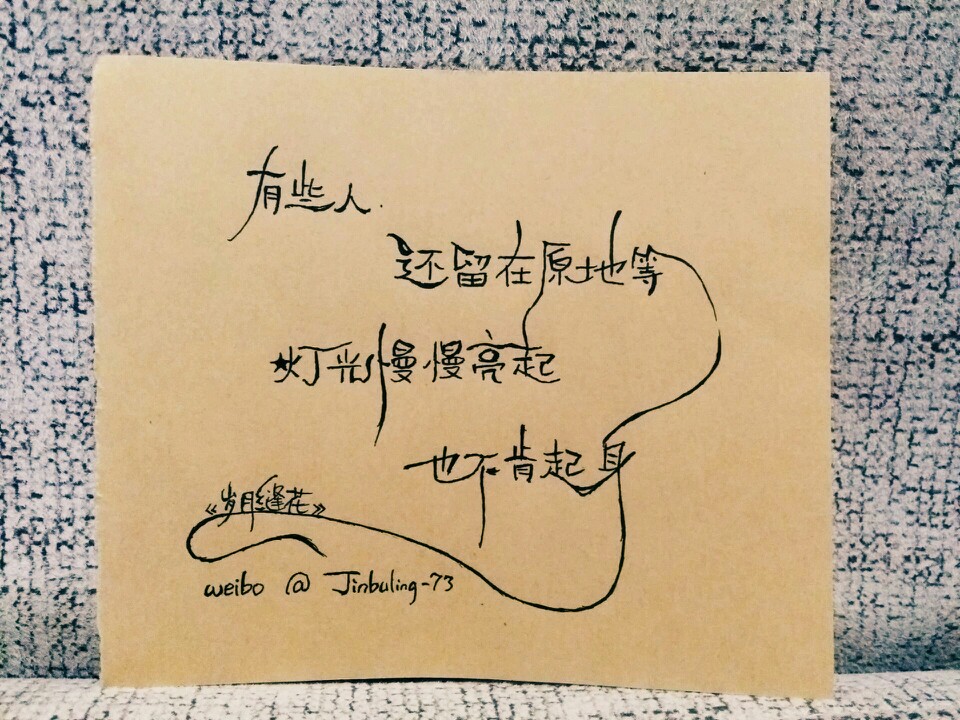 有些人.
还留在原地等
灯光慢慢亮起
也不肯起身
《岁月缝花》
weibo @ Jinbuling-73